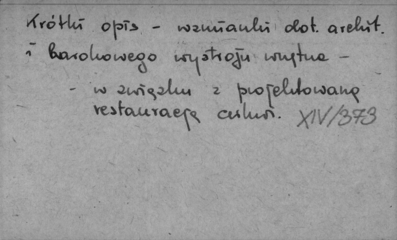 Krótki opis - wzmianki dot. archit.
i barokowego wystroju wnętrz -
- w związku z projektowaną
restauracją cerkwi. XIV/373